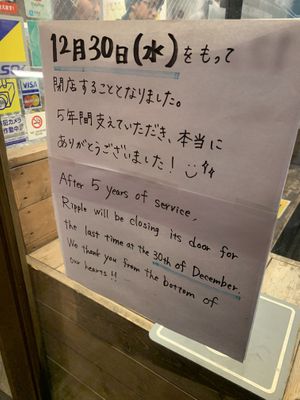 12月30日(水)をもって
閉店することとなりました。
5年間支えていただき、本当に
ありがとうございました!
After 5 years of service,
Ripple will be closing its door for
the last time at the 30th of December.
We thank you from the bottom of
our hearts!!
VISA